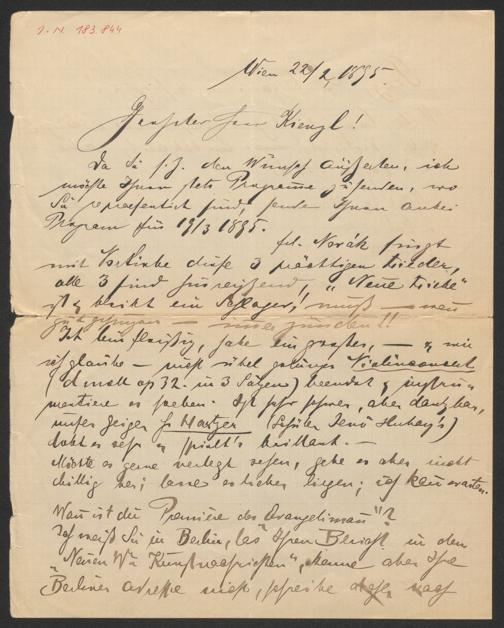 I. N. 183.844
Wien 22/2, 1895.
Geehrter Herr Kienzl!
Da Sie s. Z. den Wunsch äußerten, ich
möchte Ihnen stets Programme zusenden, wo
Sie repräsentirt sind, sende Ihnen anbei
Program für 19/3 1895.
Frl. Novák singt
mit Vorliebe diese 3 prächtigen Lieder,
alle 3 sind hinreißend, "Neue Liebe"
ist ein Schlager, muß
gut gesungen — muß zünden!!
Ich bin fleißig, habe ein großes, — wie
ich glaube — nicht übel gelungenes Violinconcert
(d moll op 32. in 3 Sätzen) beendet & instru-
mentiere es soeben. Ist sehr schwer, aber dankbar,
unser Geiger (Schüler Jenö Hubay's)
lobt es sehr & spielt's brillant. —
Möchte es gerne verlegt sehen, gebe es aber nicht
billig her; lasse es lieber liegen; ich kann warten.
Wann ist die Première des Evangelimann"?
Ich weiß Sie in Berlin, las Ihren Bericht in den
"Neuen Mus. Kunstnachrichten", kenne aber Ihre
Berliner Adresse nicht, schreibe nach